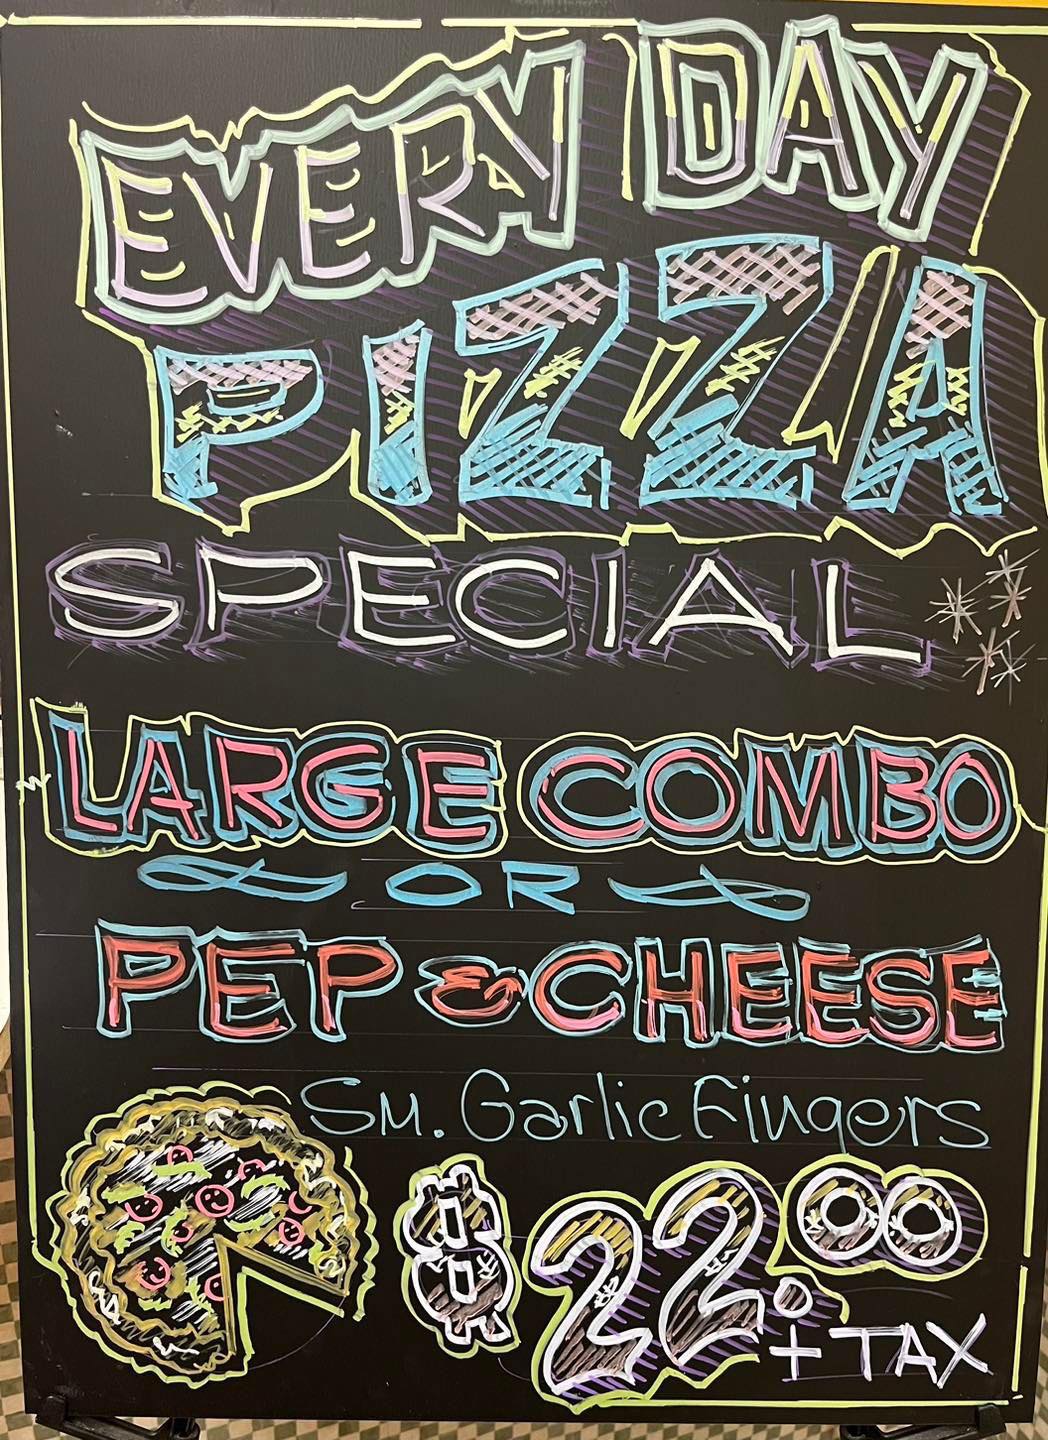 EVERY DAY
PIZZA
SPECIAL
LARGE COMBO
OR
PEP & CHEESE
Sm. Garlic Fingers
$22.00
+ TAX